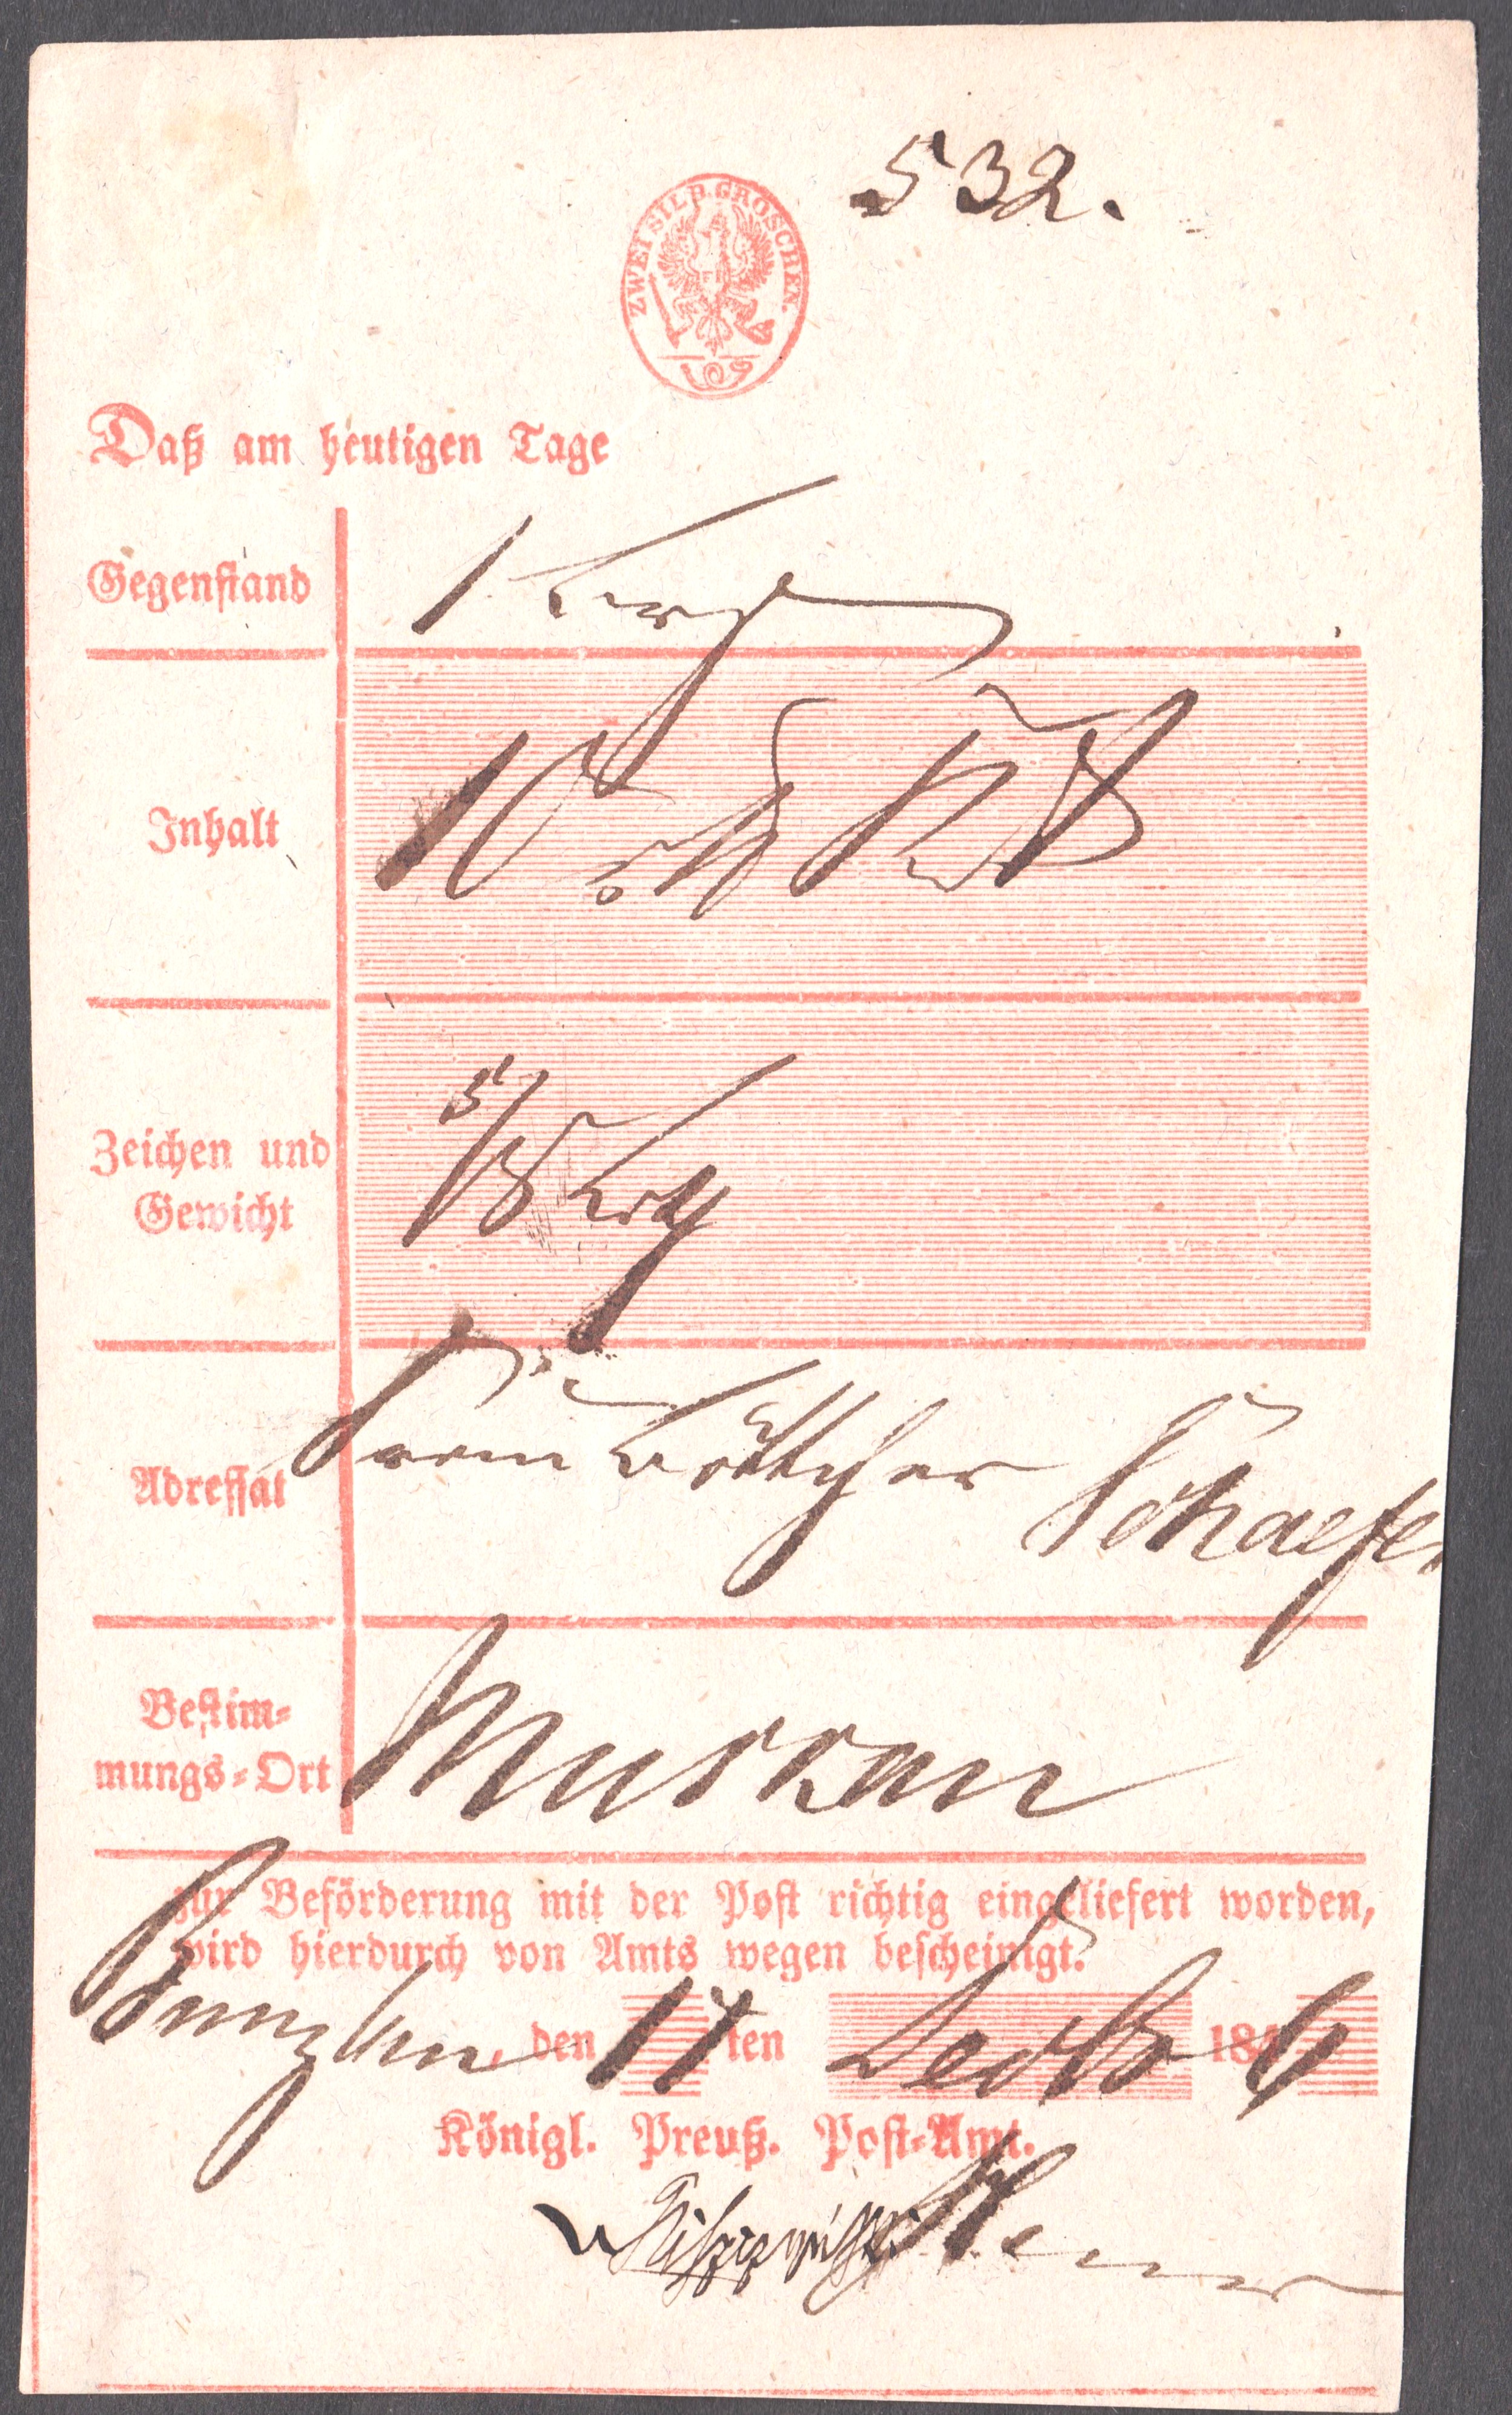 532.
ZWEI SILB. GROSCHEN.
Daß am heutigen Tage
Gegenstand 1
Inhalt 10
Zeichen und
Gewicht
Adressat Frau Böttcher Schaefer
Bestim-
mungs-Ort Muskau
zur Beförderung mit der Post richtig eingeliefert worden,
wird hierdurch von Amts wegen bescheinigt.
Bunzlau, den 17 ten Decbr 1846
Königl. Preuß. Post-Amt.